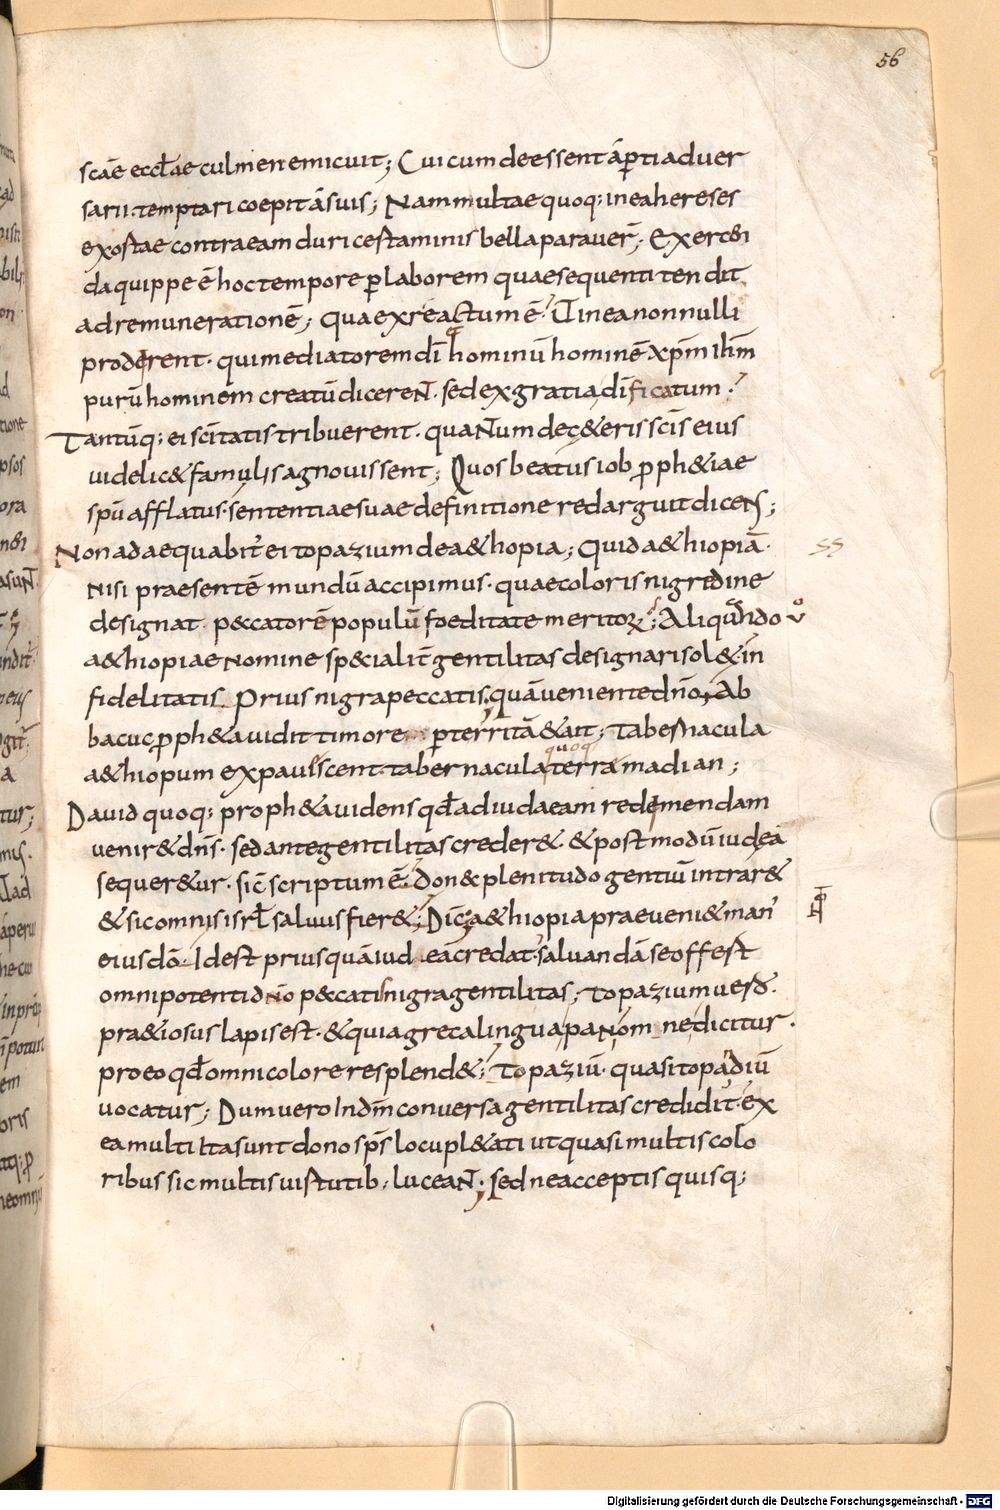 56
scāe eccłae culmen emicuit; Cui cum deessent āꝑti aduer
sarii. temptari coepit ā suis; Nam multae quoq; in ea hereses
exortae contra eam duri certaminis bella parauer̄; Exerceri
da quippe ē hoc tempore ꝑ laborem quae sequenti tendit
ad remunerationē; quae exreactum ē; Ut in ea nonnulli
proderent. qui mediatorem dī & hominū hominē xp̄m ihm̄
purū hominem creatū dicereNT. sed ex gratia dīficatum;
Tantūq; ei scītatis tribuerent. quaNTum de c&eris scīs eius
uidelic& famulis agnouissent; Quos beatus iob ꝓph&iae
spū afflatus. sententiae suae definitione redarguit dicens;
Non adaequabit' ei topazium de a&hopia; Quid a&hiopiā.
nisi praesentē mundū accipimus. quae coloris nigredine
designat peccatorē populū foeditate meritoꝝ; Aliquando
a&hiopiae nomine sp&ialit̄ gentilitas designari sol& in
fidelitatis prius nigra peccatis. quā ueniente dn̄o; Ab
bacuc ꝓph&a uidit timore ꝑterritā & ait; Tabernacula
a&hiopum expauescent. tabernacula quoq; terrā madian;
Dauid quoq; proph&a uidens qđ ad iudaeam redemendam
uenir& dn̄s. sed ante gentilitas creder& & postmodū iudea
sequer&ur. sic̄ scriptum ē; Donec plenitudo gentiū intrar&
& sic omnis isrł saluus fier&; Dic̄ a&hiopia praeueni& man'
eius dō. Idest prius quā iudea credat. saluandā se offert
omnipotenti dn̄o peccatis nigra gentilitas; Topazium uero.
pr&iosus lapis est. & quia greca lingua paNom ne dicitur.
pro eo qđ omni colore resplend&; Topaziū. quasi topadiū
uocatur; Dum uero In dn̄m conuersa gentilitas credidit. ex
ea multi Ita sunt dono sps̄ locupl&ati ut quasi multis colo
ribus sic multis uirtutib; luceaNT. Sed ne acceptis quisq;